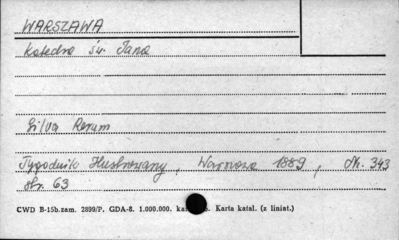 WARSZAWA
Katedra św. Jana
Silva Rerum
Tygodnik Illustrowany, Warszawa 1889, Nr. 343
str. 63
CWD B-15b.zam. 2899/P. GDA-8. 1.000.000. Karta katal. (z liniat.)